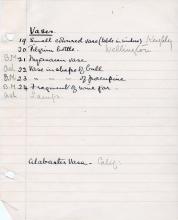 Vases.
19. Small coloured vase (table in window) Keighley
20. Pilgrim bottle. Wellington
B.M 21. Mycenaean vase
Ash 22. Vase in shape of bull
B.M. 23 " " " of porcupine
B.M. 24 Fragment of wine jar.
Ash Lamps
Alabaster Vase -